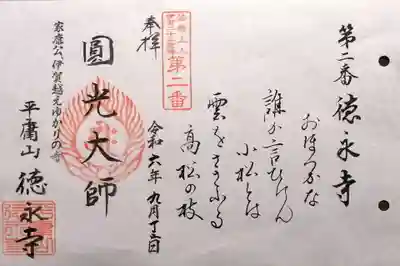 第二番 徳永寺
おぼつかな
誰か言ひけん
小松とは
雲をさゝふる
高松の枝
令和六年九月十六日
奉拝
第二番
圓光大師
家康公、伊賀越えゆかりの寺
平庸山 徳永寺